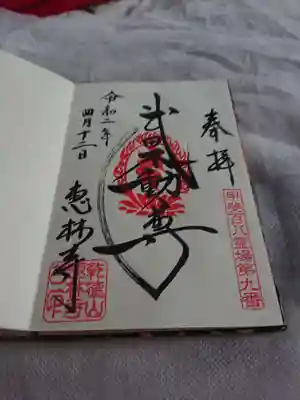 奉拝
甲斐百八霊場第九番
武田不動尊
令和二年
四月十二日
恵林寺
乾徳山